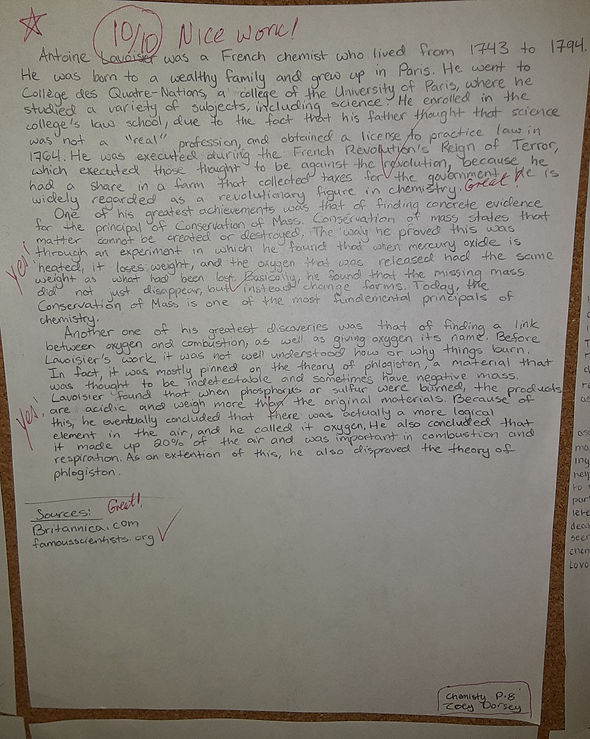 10/10 Nice work!
Antoine Lavoisier was a French chemist who lived from 1743 to 1794.
He was born to a wealthy family and grew up in Paris. He went to
Collège des Quatre-Nations, a college of the University of Paris, where he
studied a variety of subjects, including science. He enrolled in the
college's law school, due to the fact that his father thought that science
was not a "real" profession, and obtained a license to practice law in
1764. He was executed during the French Revolution's Reign of Terror,
which executed those thought to be against the revolution, because he
had a share in a farm that collected taxes for the government. He is
widely regarded as a revolutionary figure in chemistry. Great!
One of his greatest achievements was that of finding concrete evidence
for the principal of Conservation of Mass. Conservation of mass states that
matter cannot be created or destroyed. The way he proved this was
yes! through an experiment in which he found that when mercury oxide is
heated, it loses weight, and the oxygen that was released had the same
weight as what had been lost. Basically, he found that the missing mass
did not just disappear, but instead change forms. Today, the
Conservation of Mass is one of the most fundemental principals of
chemistry.
Another one of his greatest discoveries was that of finding a link
between oxygen and combustion, as well as giving oxygen its name. Before
Lavoisier's work, it was not well understood how or why things burn.
In fact, it was mostly pinned on the theory of phlogiston, a material that
was thought to be indetectable and sometimes have negative mass.
Lavoisier found that when phosphorus or sulfur were burned, the products
yes! are acidic and weigh more than the original materials. Because of
this, he eventually concluded that there was actually a more logical
element in the air, and he called it oxygen. He also concluded that
it made up 20% of the air and was important in combustion and
respiration. As an extention of this, he also disproved the theory of
phlogiston.
Sources: Great!
Britannica.com
famousscientists.org
Chemisty P.8
Zoey Dorsey